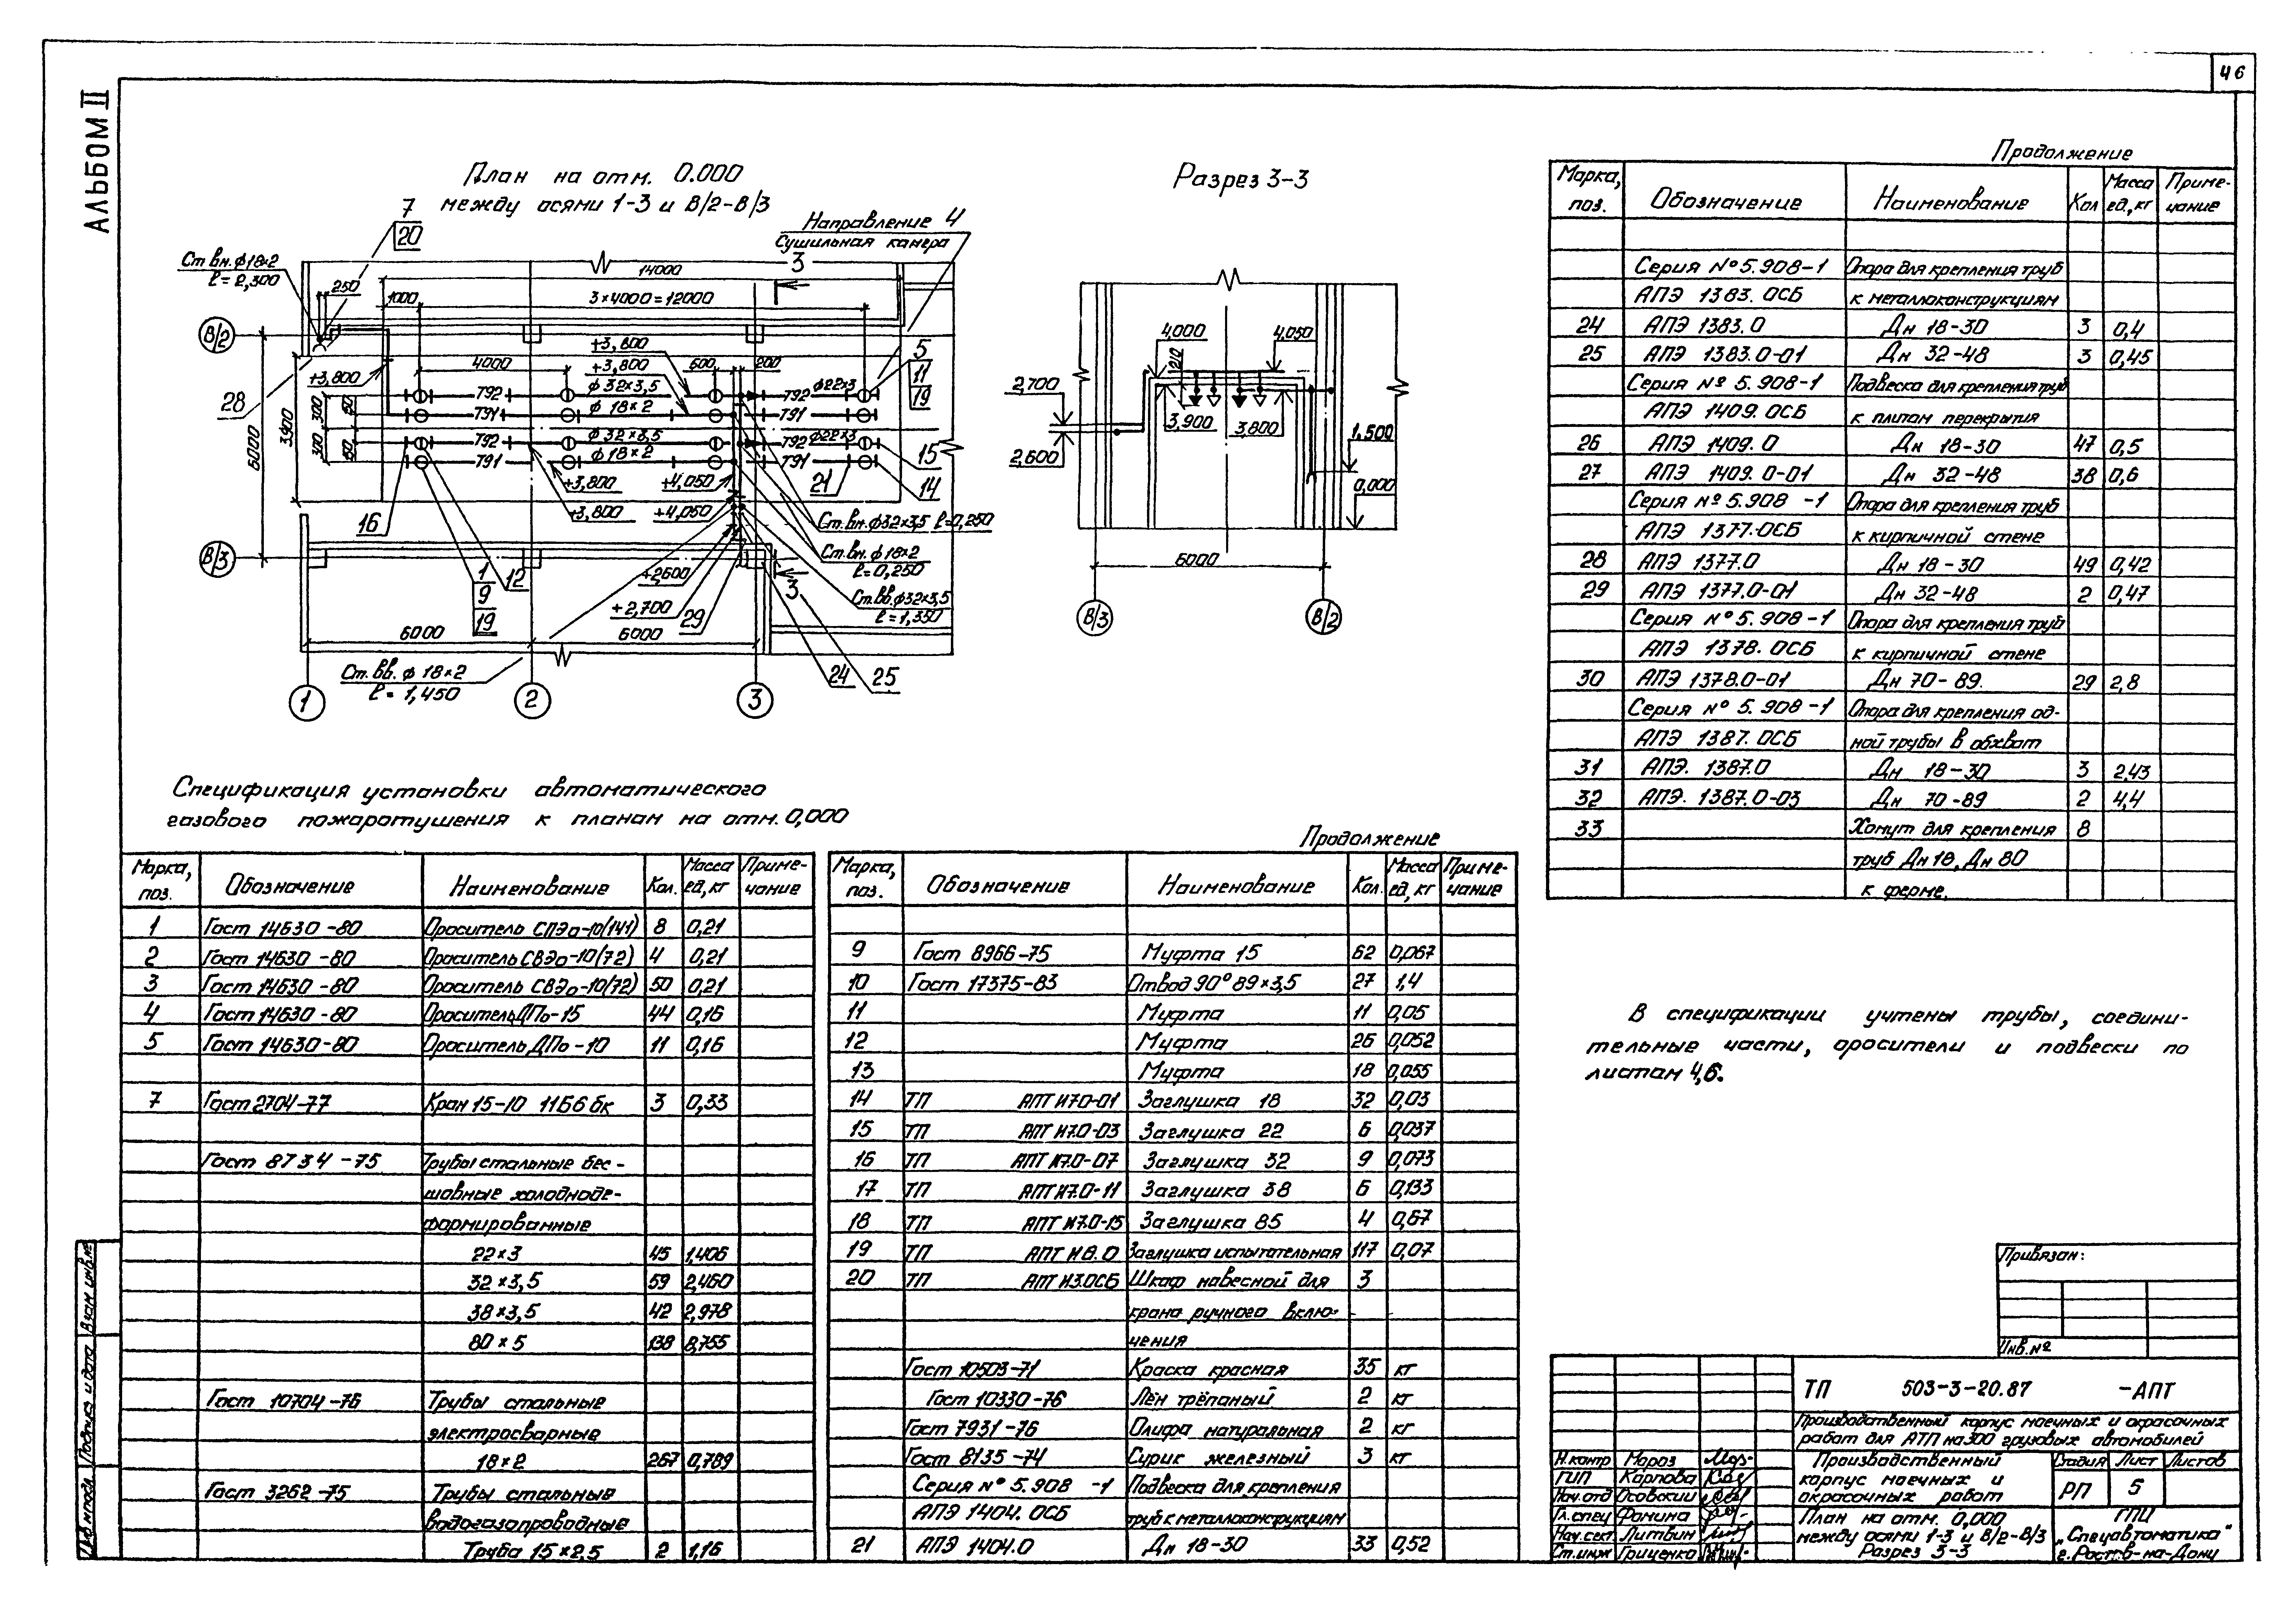 46
АЛЬБОМ II
План на отм. 0.000
между осями 1-3 и В/2-В/3
7
20
Направление 4
Сушильная камера
Ст.вн. ф18×2
ℓ=2,300
250
14000
3
1000
3×4000=12000
В/2
+3,800
4000
+3,800
600
200
5
11
19
+3,800
28
Т92
ф 32×3,5
Т92
ф22×3
Т91
ф 18×2
Т91
6000
3900
300
150
300
150
Т92
ф 32×3,5
Т92
ф22×3
15
Т91
ф18×2
Т91
+3,800
+4,050
21
14
16
+3,800
+4,050
Ст.вн. ф32×3,5 ℓ=0,250
В/3
Ст.вн. ф18×2
ℓ=0,250
1
9
19
12
+2,600
3
Ст.вв. ф32×3,5
ℓ=1,350
+2,700
29
6000
6000
Ст.вв. ф 18×2
ℓ= 1,450
24
25
1
2
3
Разрез 3-3
4,000
4,050
210
2,700
3,900
3,800
1,500
2,600
0,000
6000
В/3
В/2
Продолжение
Марка, поз. Обозначение Наименование Кол Масса ед,кг Приме-чание
Серия №5.908-1 Опора для крепления труб
АПЭ 1383.ОСБ к металлоконструкциям
24 АПЭ 1383.0 Дн 18-30 3 0,4
25 АПЭ 1383.0-01 Дн 32-48 3 0,45
Серия № 5.908-1 Подвеска для крепления труб
АПЭ 1409.ОСБ к плитам перекрытия
26 АПЭ 1409.0 Дн 18-30 47 0,5
27 АПЭ 1409.0-01 Дн 32-48 38 0,6
Серия № 5.908 -1 Опора для крепления труб
АПЭ 1377.ОСБ к кирпичной стене
28 АПЭ 1377.0 Дн 18-30 49 0,42
29 АПЭ 1377.0-01 Дн 32-48 2 0,47
Серия № 5.908-1 Опора для крепления труб
АПЭ 1378.ОСБ к кирпичной стене
30 АПЭ 1378.0-01 Дн 70-89. 29 2,8
Серия № 5.908-1 Опора для крепления од-
АПЭ 1387.ОСБ ной трубы в обхват
31 АПЭ. 1387.0 Дн 18-30 3 2,43
32 АПЭ. 1387.0-03 Дн 70-89 2 4,4
33 Хомут для крепления 8
труб Дн 18, Дн 80
к ферме.
Спецификация установки автоматического
газового пожаротушения к планам на отм. 0,000
Марка, поз. Обозначение Наименование Кол. Масса ед,кг Приме-чание
1 Гост 14630-80 Ороситель СПЭо-10(141) 8 0,21
2 Гост 14630-80 Ороситель СВЭо-10(72) 4 0,21
3 Гост 14630-80 Ороситель СВЭо-10(72) 50 0,21
4 Гост 14630-80 Ороситель ДПо-15 44 0,16
5 Гост 14630-80 Ороситель ДПо-10 11 0,16
7 Гост 2704-77 Кран 15-10 11Б6бк 3 0,33
Гост 8734-75 Трубы стальные бес-
шовные холодноде-
формированные
22×3 45 1,406
32×3,5 59 2,460
38×3,5 42 2,978
80×5 138 8,755
Гост 10704-76 Трубы стальные
электросварные
18×2 267 0,789
Гост 3262-75 Трубы стальные
водогазопроводные
Труба 15×2,5 2 1,16
Продолжение
Марка, поз. Обозначение Наименование Кол. Масса ед,кг Приме-чание
9 Гост 8966-75 Муфта 15 62 0,067
10 Гост 17375-83 Отвод 90° 89×3,5 27 1,4
11 Муфта 11 0,05
12 Муфта 26 0,052
13 Муфта 18 0,055
14 ТП АПТ И7.0-01 Заглушка 18 32 0,03
15 ТП АПТ И7.0-03 Заглушка 22 6 0,037
16 ТП АПТ И7.0-07 Заглушка 32 9 0,073
17 ТП АПТ И7.0-11 Заглушка 38 6 0,133
18 ТП АПТ И7.0-15 Заглушка 85 4 0,67
19 ТП АПТ И8.0 Заглушка испытательная 117 0,07
20 ТП АПТ И3.ОСБ Шкаф навесной для 3
крана ручного вклю-
чения
Гост 10503-71 Краска красная 35 кг
Гост 10330-76 Лён трёпаный 2 кг
Гост 7931-76 Олифа натуральная 2 кг
Гост 8135-74 Сурик железный 3 кг
Серия № 5.908 -1 Подвеска для крепления
АПЭ 1404.ОСБ труб к металлоконструкциям
21 АПЭ 1404.0 Дн 18-30 33 0,52
В спецификации учтены трубы, соедини-
тельные части, оросители и подвески по
листам 4,6.
Привязан:
Инв.№
ТП 503-3-20.87 -АПТ
Производственный корпус моечных и окрасочных
работ для АТП на 300 грузовых автомобилей
Н.контр Мороз
ГИП Карпова
Нач.отд Осовский
Гл.спец Фомина
Нач.сект. Литвин
Ст.инж Гриценко
Производственный
корпус моечных и
окрасочных работ
Стадия Лист Листов
РП 5
План на отм. 0,000
между осями 1-3 и В/2-В/3
Разрез 3-3
ГПИ
„Спецавтоматика"
г.Ростов-на-Дону
Инв.№ подл. Подпись и дата Взам.инв.№